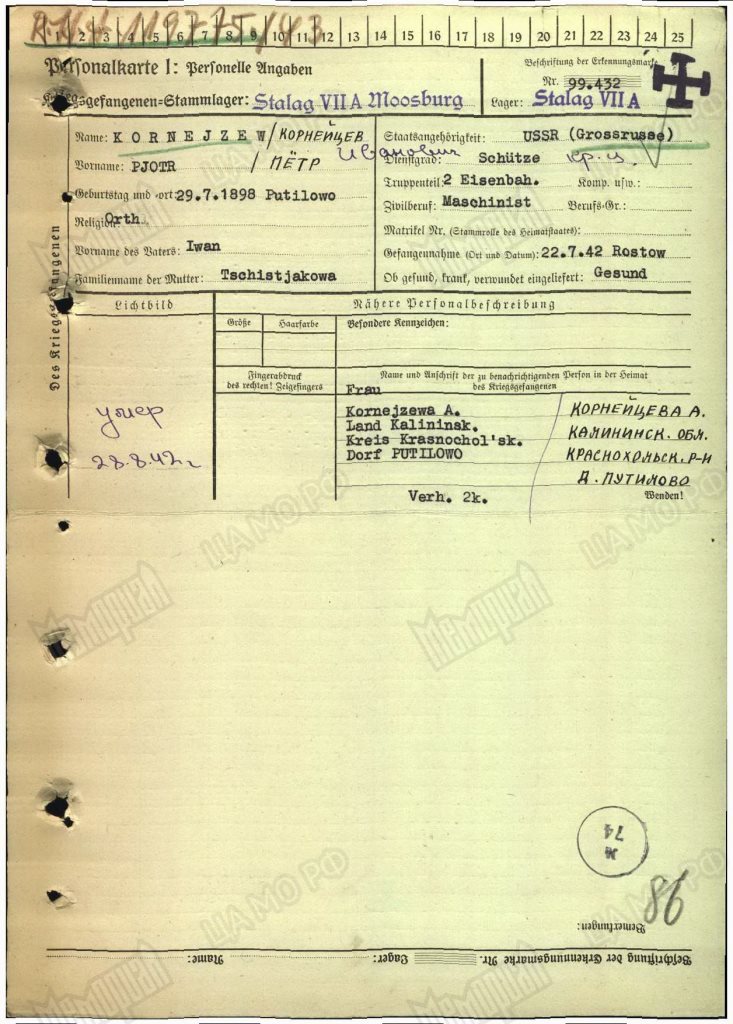 1 2 3 4 5 6 7 8 9 10 11 12 13 14 15 16 17 18 19 20 21 22 23 24 25
Personalkarte I: Personelle Angaben
Beschriftung der Erkennungsmarke
Nr. 99.432
Kriegsgefangenen=Stammlager: Stalag VII A Moosburg
Lager: Stalag VII A
Des Kriegsgefangenen
Name: KORNEJZEW / КОРНЕЙЦЕВ
Иванович
Vorname: PJOTR / ПЁТР
Geburtstag und =ort: 29.7.1898 Putilowo
Religion: Orth.
Vorname des Vaters: Iwan
Familienname der Mutter: Tschistjakowa
Staatsangehörigkeit: USSR (Grossrusse)
Dienstgrad: Schütze кр-ц.
Truppenteil: 2 Eisenbah. Komp. usw.:
Zivilberuf: Maschinist Berufs-Gr.:
Matrikel Nr. (Stammrolle des Heimatstaates):
Gefangennahme (Ort und Datum): 22.7.42 Rostow
Ob gesund, krank, verwundet eingeliefert: Gesund
Lichtbild
Nähere Personalbeschreibung
Größe Haarfarbe Besondere Kennzeichen:
Fingerabdruck
des rechten! Zeigefingers
Name und Anschrift der zu benachrichtigenden Person in der Heimat
des Kriegsgefangenen
умер
28.8.42 г
Frau
Kornejzewa A.
Land Kalininsk.
Kreis Krasnochol'sk.
Dorf PUTILOWO
Verh. 2k.
КОРНЕЙЦЕВА А.
КАЛИНИНСК. ОБЛ.
КРАСНОХОЛЬСК. Р-Н
Д. ПУТИЛОВО
Wenden!
ЦАМО РФ
Мемориал
74
86
Bemerkungen:
Beschriftung der Erkennungsmarke Nr. Lager: Name: